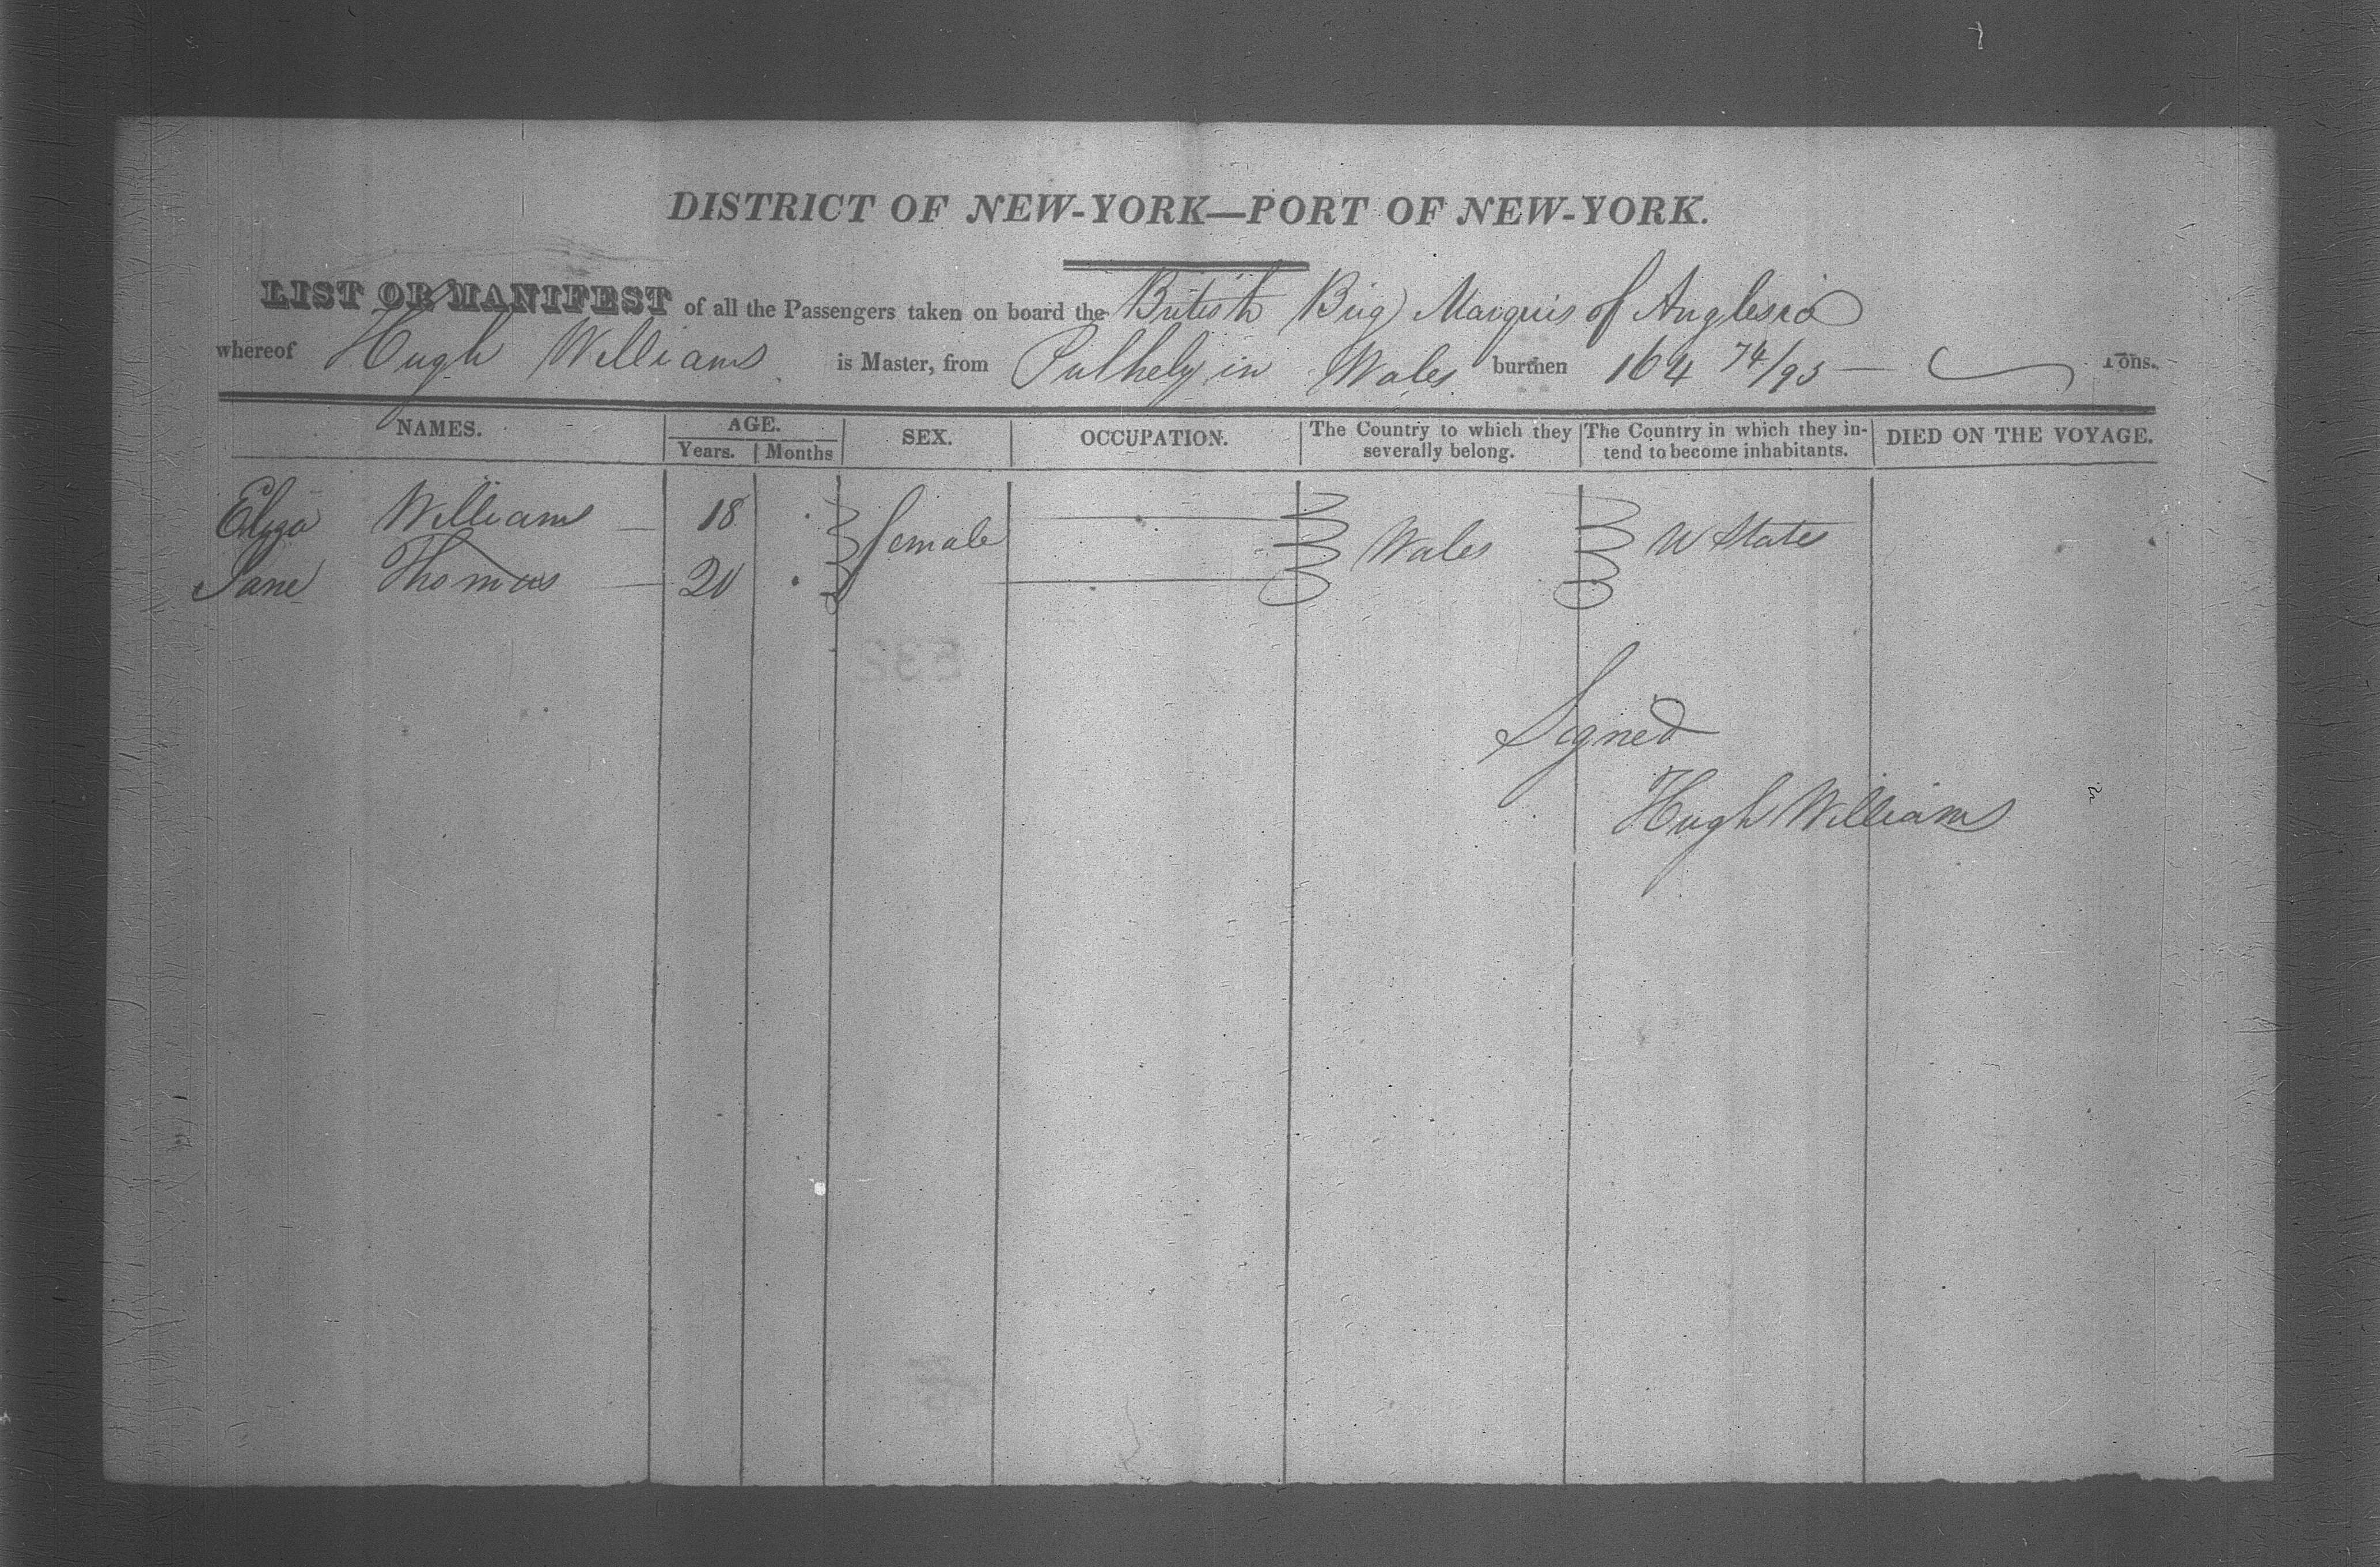 DISTRICT OF NEW-YORK—PORT OF NEW-YORK.
LIST OR MANIFEST of all the Passengers taken on board the British Brig Marquis of Anglesea
whereof Hugh Williams is Master, from Pulhely in Wales burthen 164 74/95 — Tons.
NAMES. AGE. SEX. OCCUPATION. The Country to which they severally belong. The Country in which they intend to become inhabitants. DIED ON THE VOYAGE.
Years. Months
Eliza Williams — 18 female — Wales U States
Jane Thomas — 20
532
Signed
Hugh Williams